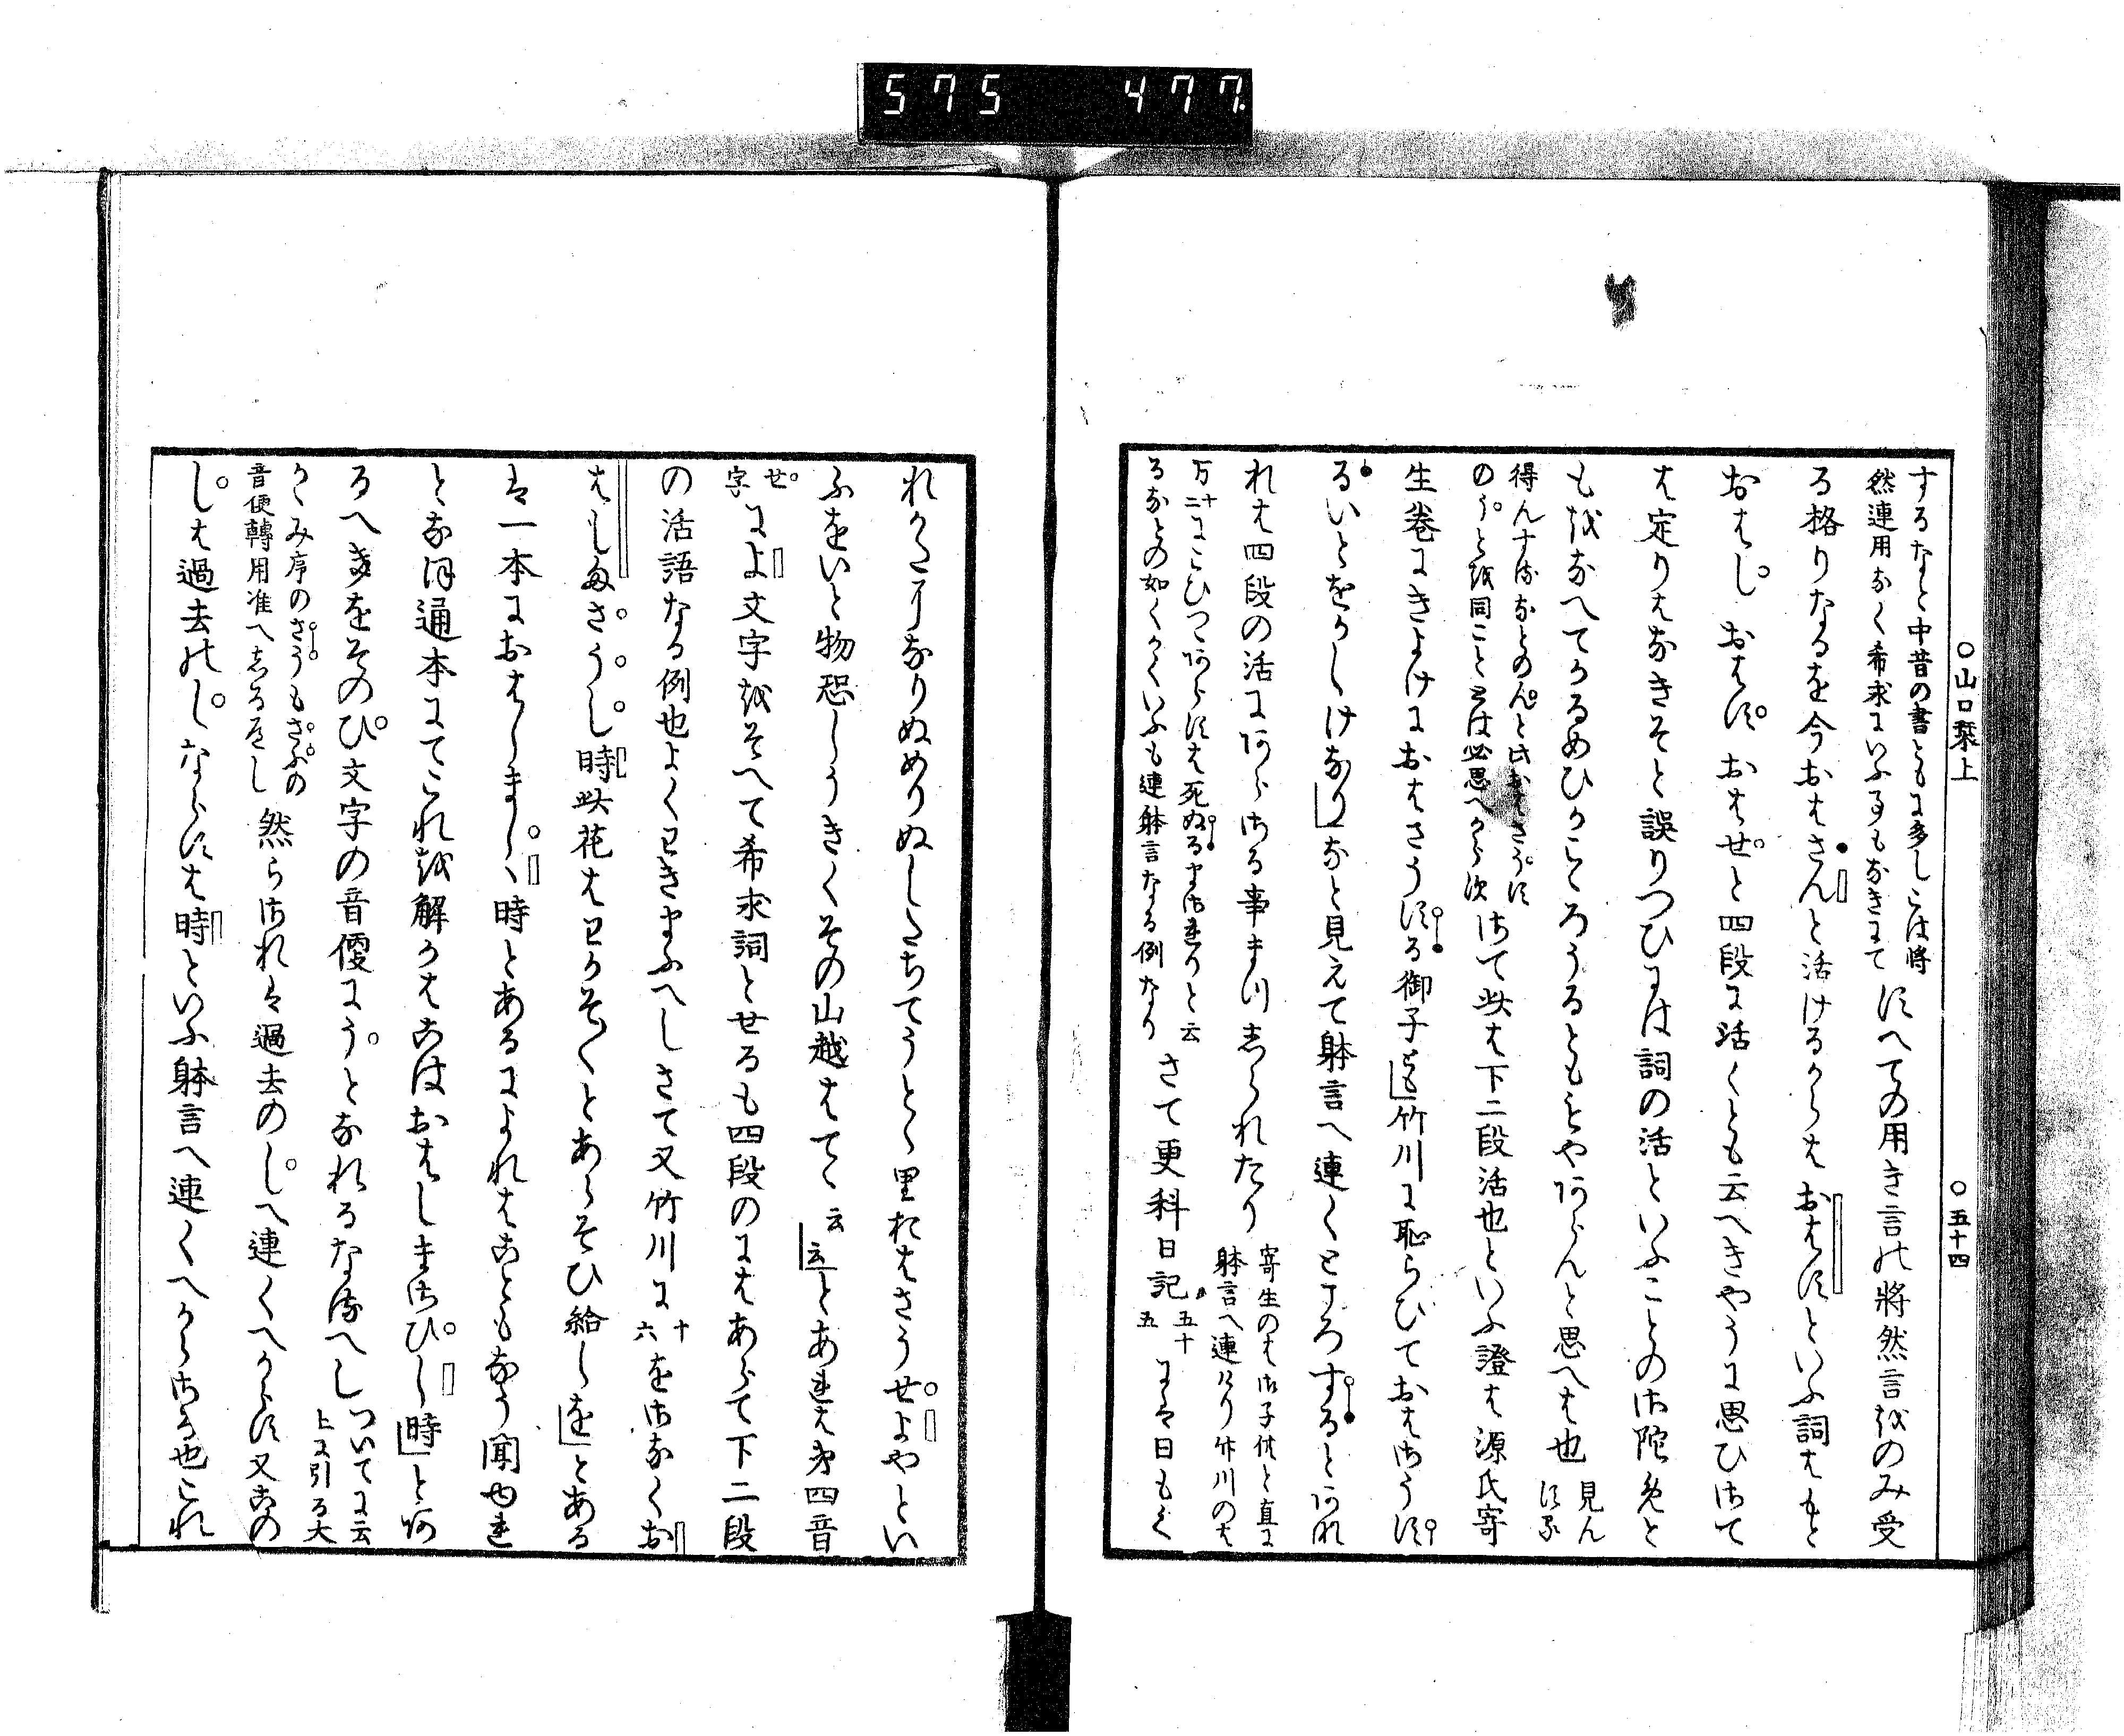 575 477
○山口栞上 ○五十四
するなと中昔の書ともに多しこは將
然連用なく希求にいふ事もなきにて
すへての用き言の將然言をのみ受
る格りなるを今おはさんと活けるからはおはすといふ詞はもと
おはし おはす おはせと四段に活くとも云へきやうに思ひさて
は定りはなきそと誤りつひには詞の活といふことのさためと
もをなへてかるめひかところうるともをやあらんと思へは也
見ん
得んするなとのんと此おはさうす
のうとを同ことには必思へからす
さて此は下二段活也といふ證は源氏寄
生卷にきよけにおはさうする御子とも竹川に恥らひておはさうす
るいとをかしけなりなと見えて躰言へ連くところするとあれ
れは四段の活にあらさる事まつしられたり
寄生のは御子供と直に
躰言へ連けり竹川のは
万十二にこひつつあらすは死ぬるまされりと云
るなとの如くかくいふも連躰言なる例なり
さて更科日記五十五には日もくく
れかたになりぬめりぬしたちてうとと里おはさうせよやとい
ふをいと物恐しうきくその山越はてて云云とあれは第四音
せ字によ文字をそへて希求詞とせるも四段のにはあらて下二段
の活語なる例也よくわきまふへしさて又竹川に十六をさなくお
はしまさうし時此花はわかそわかそとあらそひ給しをとある
は一本におはしましし時とあるによれはことともなう聞ゆれ
となほ通本にてこれを解かはこはおはしまさひし時とあ
るへきをそのひ文字の音便にうとなれるなるへし
ついてに云
上に引る大
かゝみ序のさうもさふの
音便轉用准へしるへし
然らされは過去のしへ連くへからす又この
しは過去のしならすは時といふ躰言へ連くへからさる也これ